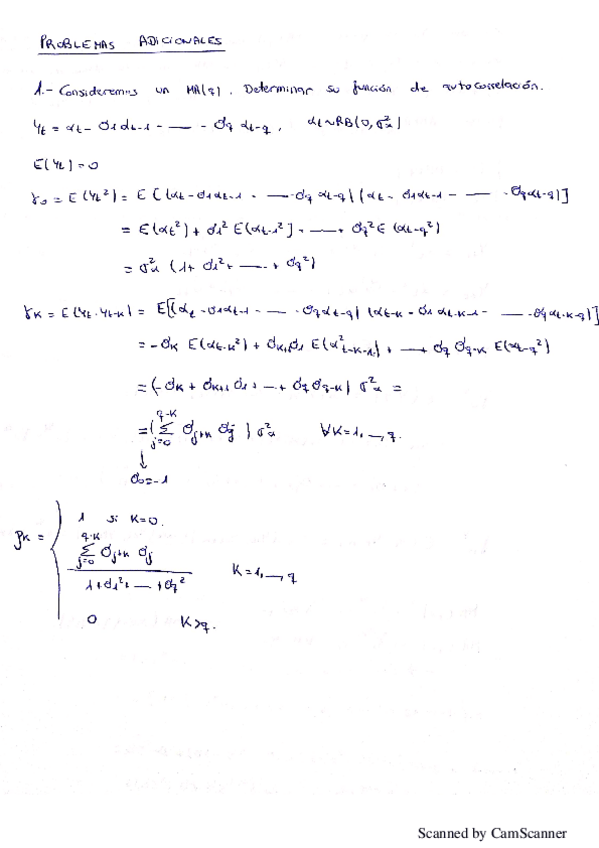 PROBLEMAS ADICIONALES
1.- Consideremos un MA(q). Determinar su función de autocorrelación.
Yt = αt - θ1αt-1 - — - θq αt-q , αt~RB(0,σ²α)
E(Yt) = 0
γ0 = E(Yt²) = E[(αt - θ1αt-1 - — - θq αt-q)(αt - θ1αt-1 - — - θqαt-q)]
= E(αt²) + θ1² E(αt-1²) + — + θq² E(αt-q²)
= σ²α (1 + θ1² + — + θq²)
γK = E(Yt·Yt-K) = E[(αt - θ1αt-1 - — - θqαt-q)(αt-K - θ1αt-K-1 - — - θqαt-K-q)]
= -θK E(αt-K²) + θK+1θ1 E(α²t-K-1) + — + θq θq-K E(αt-q²)
= (-θK + θK+1θ1 + — + θqθq-K) σ²α =
= (Σ j=0 q-K θj+K θj) σ²α ∀K=1,—,q.
↓
θ0=-1
ρK = { 1 si K=0.
Σ j=0 q-K θj+K θj / 1+θ1²+—+θq² K=1,—,q
0 K>q.
Scanned by CamScanner